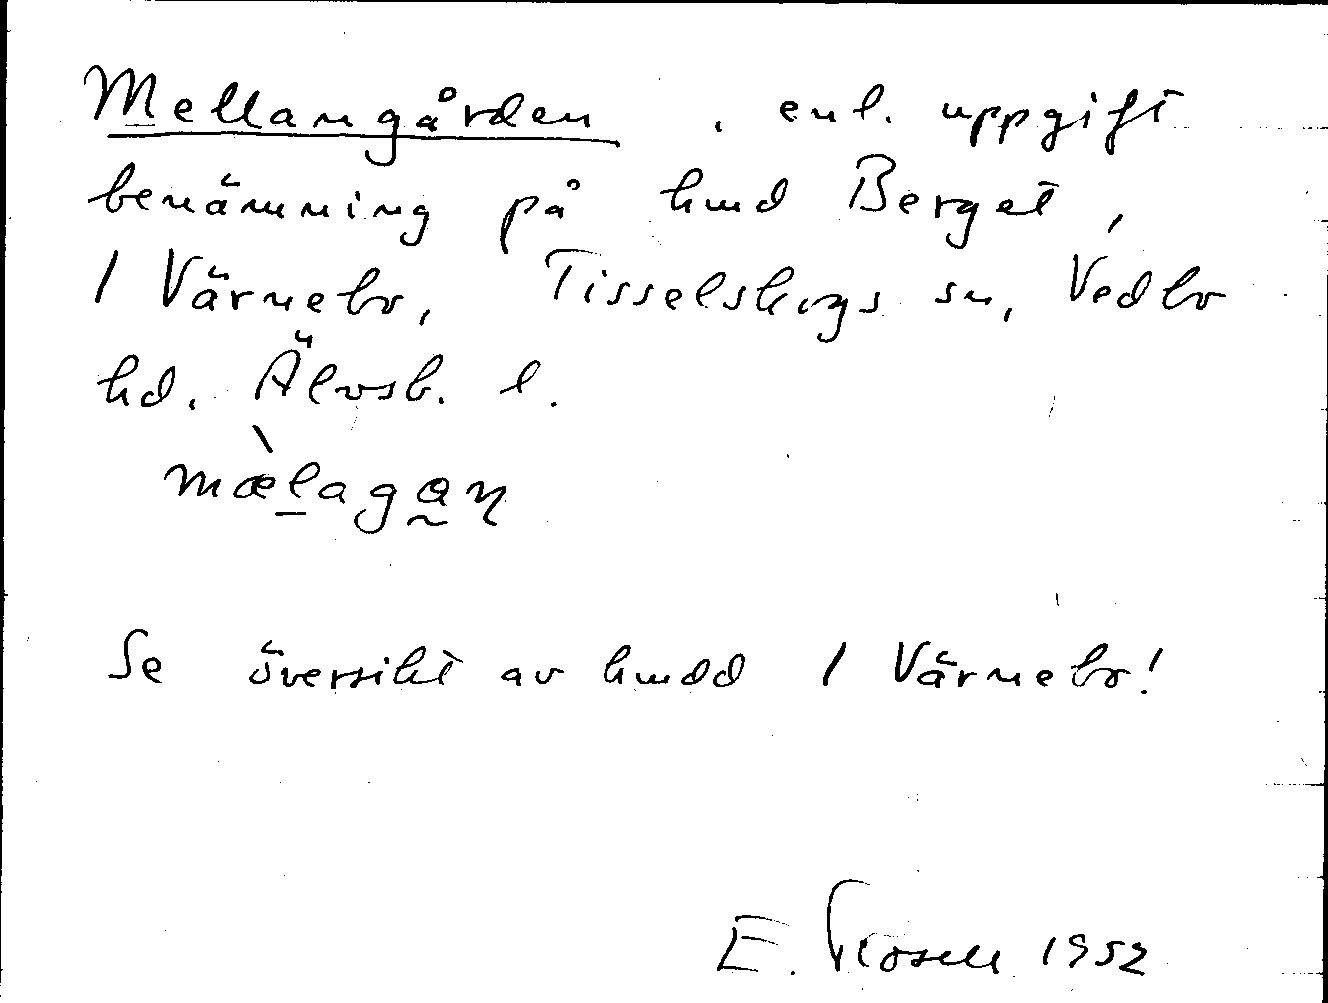 Mellangården, enl. uppgift
benämning på hmd Berget,
1 Värnebo, Tisselskogs sn, Vedbo
hd. Älvsb. l.
mæ̀lagan
Se översikt av hmdd 1 Värnebo!
E. 1952